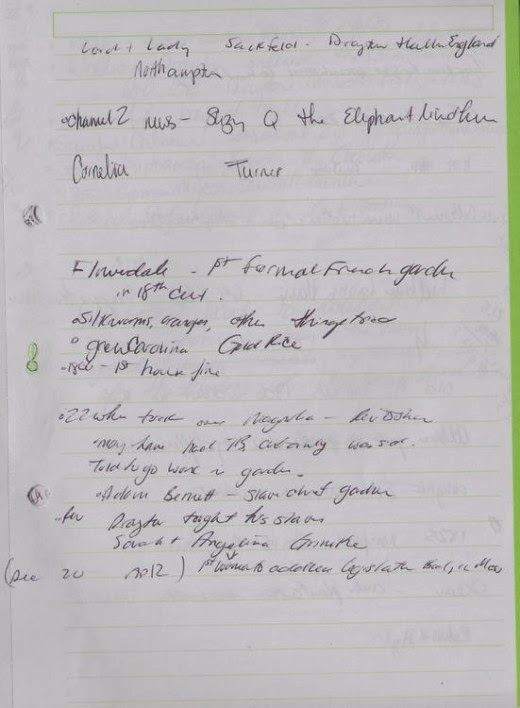 Lord + Lady Sackfeld - Drayton Hall in England
Northampton
channel 2 news - Suzy Q the Elephant
Cornelia Turner
Flowerdale - 1st formal French garden
in 18th Cent.
silkworms, oranges, other things tried
grew Carolina Gold Rice
- 1st house fire
22 when took over Magnolia - Rev Drayton
may have had TB, certainly was sick.
Told to go work in garden.
Adam Bennett - slave chief garden
Rev Drayton taught his slaves
Sarah + Angelina Grimke
(Dec 20 2012) 1st woman to address legislative